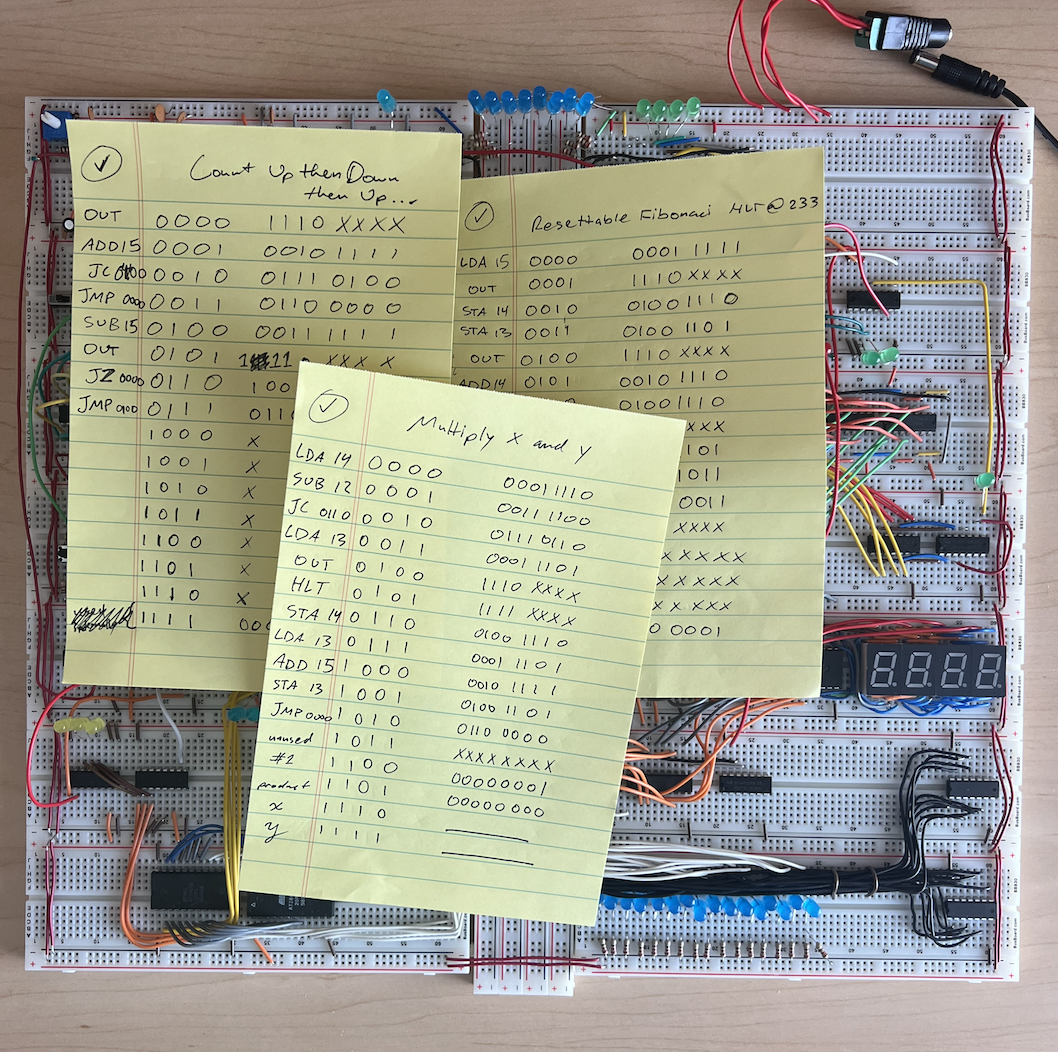 ✓
Count Up then Down
then Up...
OUT 0000 1110 XXXX
ADD15 0001 0010 1111
JC 0010 0111 0100
JMP 0000 0011 0110 0000
SUB15 0100 0011 1111
OUT 0101 XXXX
JZ 0000 0110 100
JMP 0100 0111 011
1000 X
1001 X
1010 X
1011 X
1100 X
1101 X
1110 X
1111 00
✓
Resettable Fibonaci HLT@233
LDA 15 0000 0001 1111
OUT 0001 1110 XXXX
STA 14 0010 0100 1110
STA 13 0011 0100 1101
OUT 0100 1110 XXXX
ADD14 0101 0010 1110
0100 1110
XXX
101
1011
0011
XXXX
XXXXX
XXXXX
X XXX
0 0001
✓
Multiply X and Y
LDA 14 0000 0001 1110
SUB 12 0001 0011 1100
JC 0110 0010 0111 0110
LDA 13 0011 0001 1101
OUT 0100 1110 XXXX
HLT 0101 1111 XXXX
STA 14 0110 0100 1110
LDA 13 0111 0001 1101
ADD 15 1000 0010 1111
STA 13 1001 0100 1101
JMP 0000 1010 0110 0000
unused 1011 XXXXXXXX
#1 1100 00000001
product 1101 00000000
x 1110
y 1111